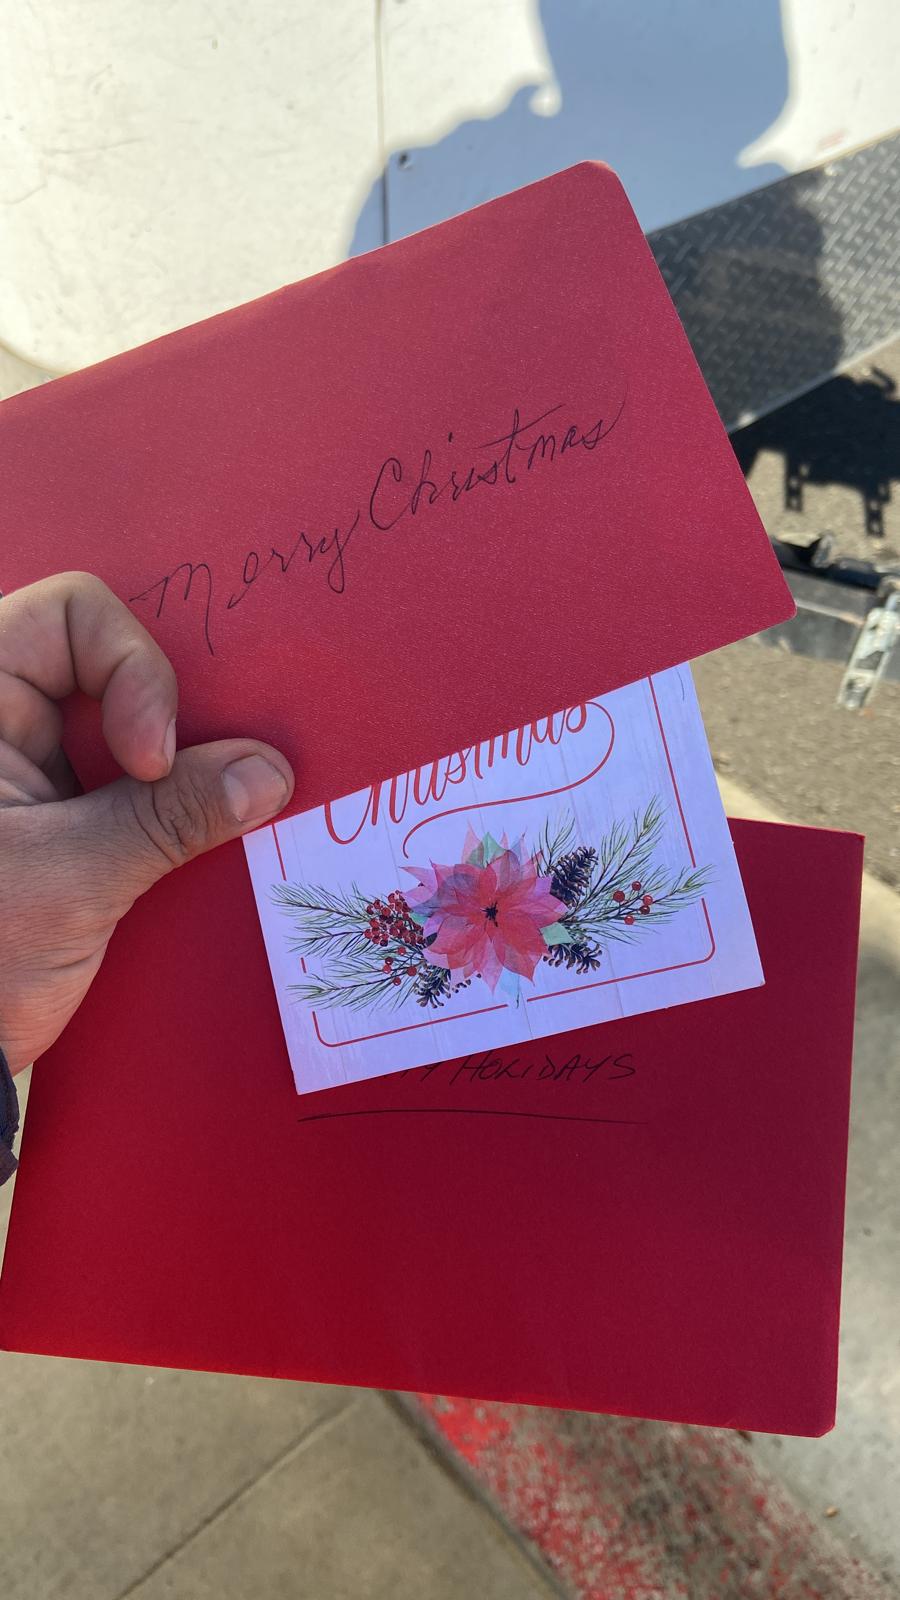 Merry Christmas
Christmas
Holidays